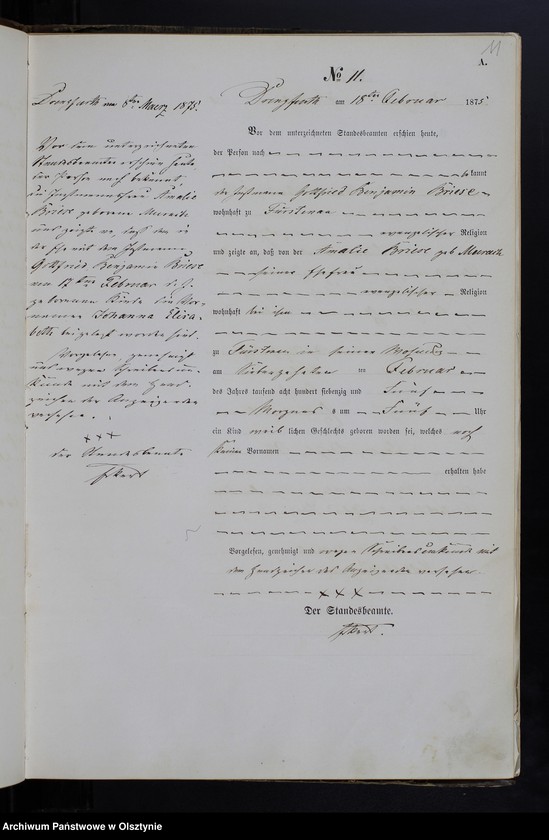 11
A.
No 11.
Doenhoffstaedt am 18ten Februar 1875.
Vor dem unterzeichneten Standesbeamten erschien heute,
der Person nach
bekannt
der Instmann Gottfried Benjamin Briese
wohnhaft zu Fürstenau
evangelischer Religion
und zeigte an, daß von der Amalie Briese geb
seiner Ehefrau
evangelischer Religion
wohnhaft bei ihm
zu Fürstenau in seiner Wohnung
am Siebzehnten im Februar
des Jahres tausend acht hundert siebenzig und Fünf
Morgens um Fünf Uhr
ein Kind weiblichen Geschlechts geboren worden sei, welches noch
keine Vornamen
erhalten habe
Vorgelesen, genehmigt und wegen Schreibensunkunde mit
dem Handzeichen des Anzeigenden versehen
XXX
Der Standesbeamte.
am 8ten Maerz 1875.
Vor dem unterzeichneten
Standesbeamten erschien heute
der Person nach bekannt
die Instmannsfrau Amalie
Briese geborene
und zeigte an, daß dem in
der Ehe mit dem Instmann
Gottfried Benjamin Briese
am Februar d. J.
geborenen Kinde die Vor-
namen Johanna Elisa-
beth beigelegt worden sind.
Vorgelesen, genehmigt
und wegen Schreibensun-
kunde mit dem Hand-
zeichen der Anzeigenden
versehen.
XXX
der Standesbeamte
Archiwum Państwowe w Olsztynie